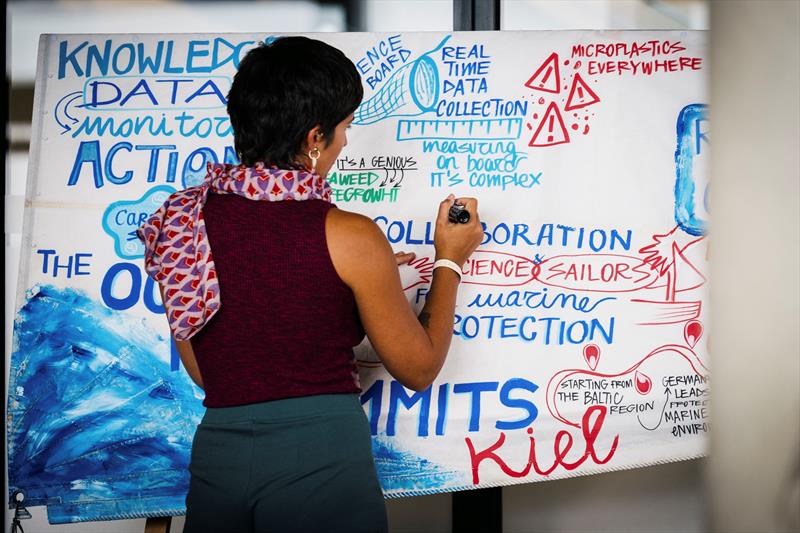 KNOWLEDG
DATA
monitor
ACTION
ENCE
BOARD
REAL
TIME
DATA
COLLECTION
measuring
on board
it's complex
MICROPLASTICS
EVERYWHERE
IT'S A GENIUS
AWEED
REGROWHT
CAR
THE
COLLABORATION
SCIENCE & SAILORS
marine
PROTECTION
MMITS
Kiel
STARTING FROM
THE BALTIC
REGION
GERMAN
LEADS
PROTE
MARINE
ENVIRON